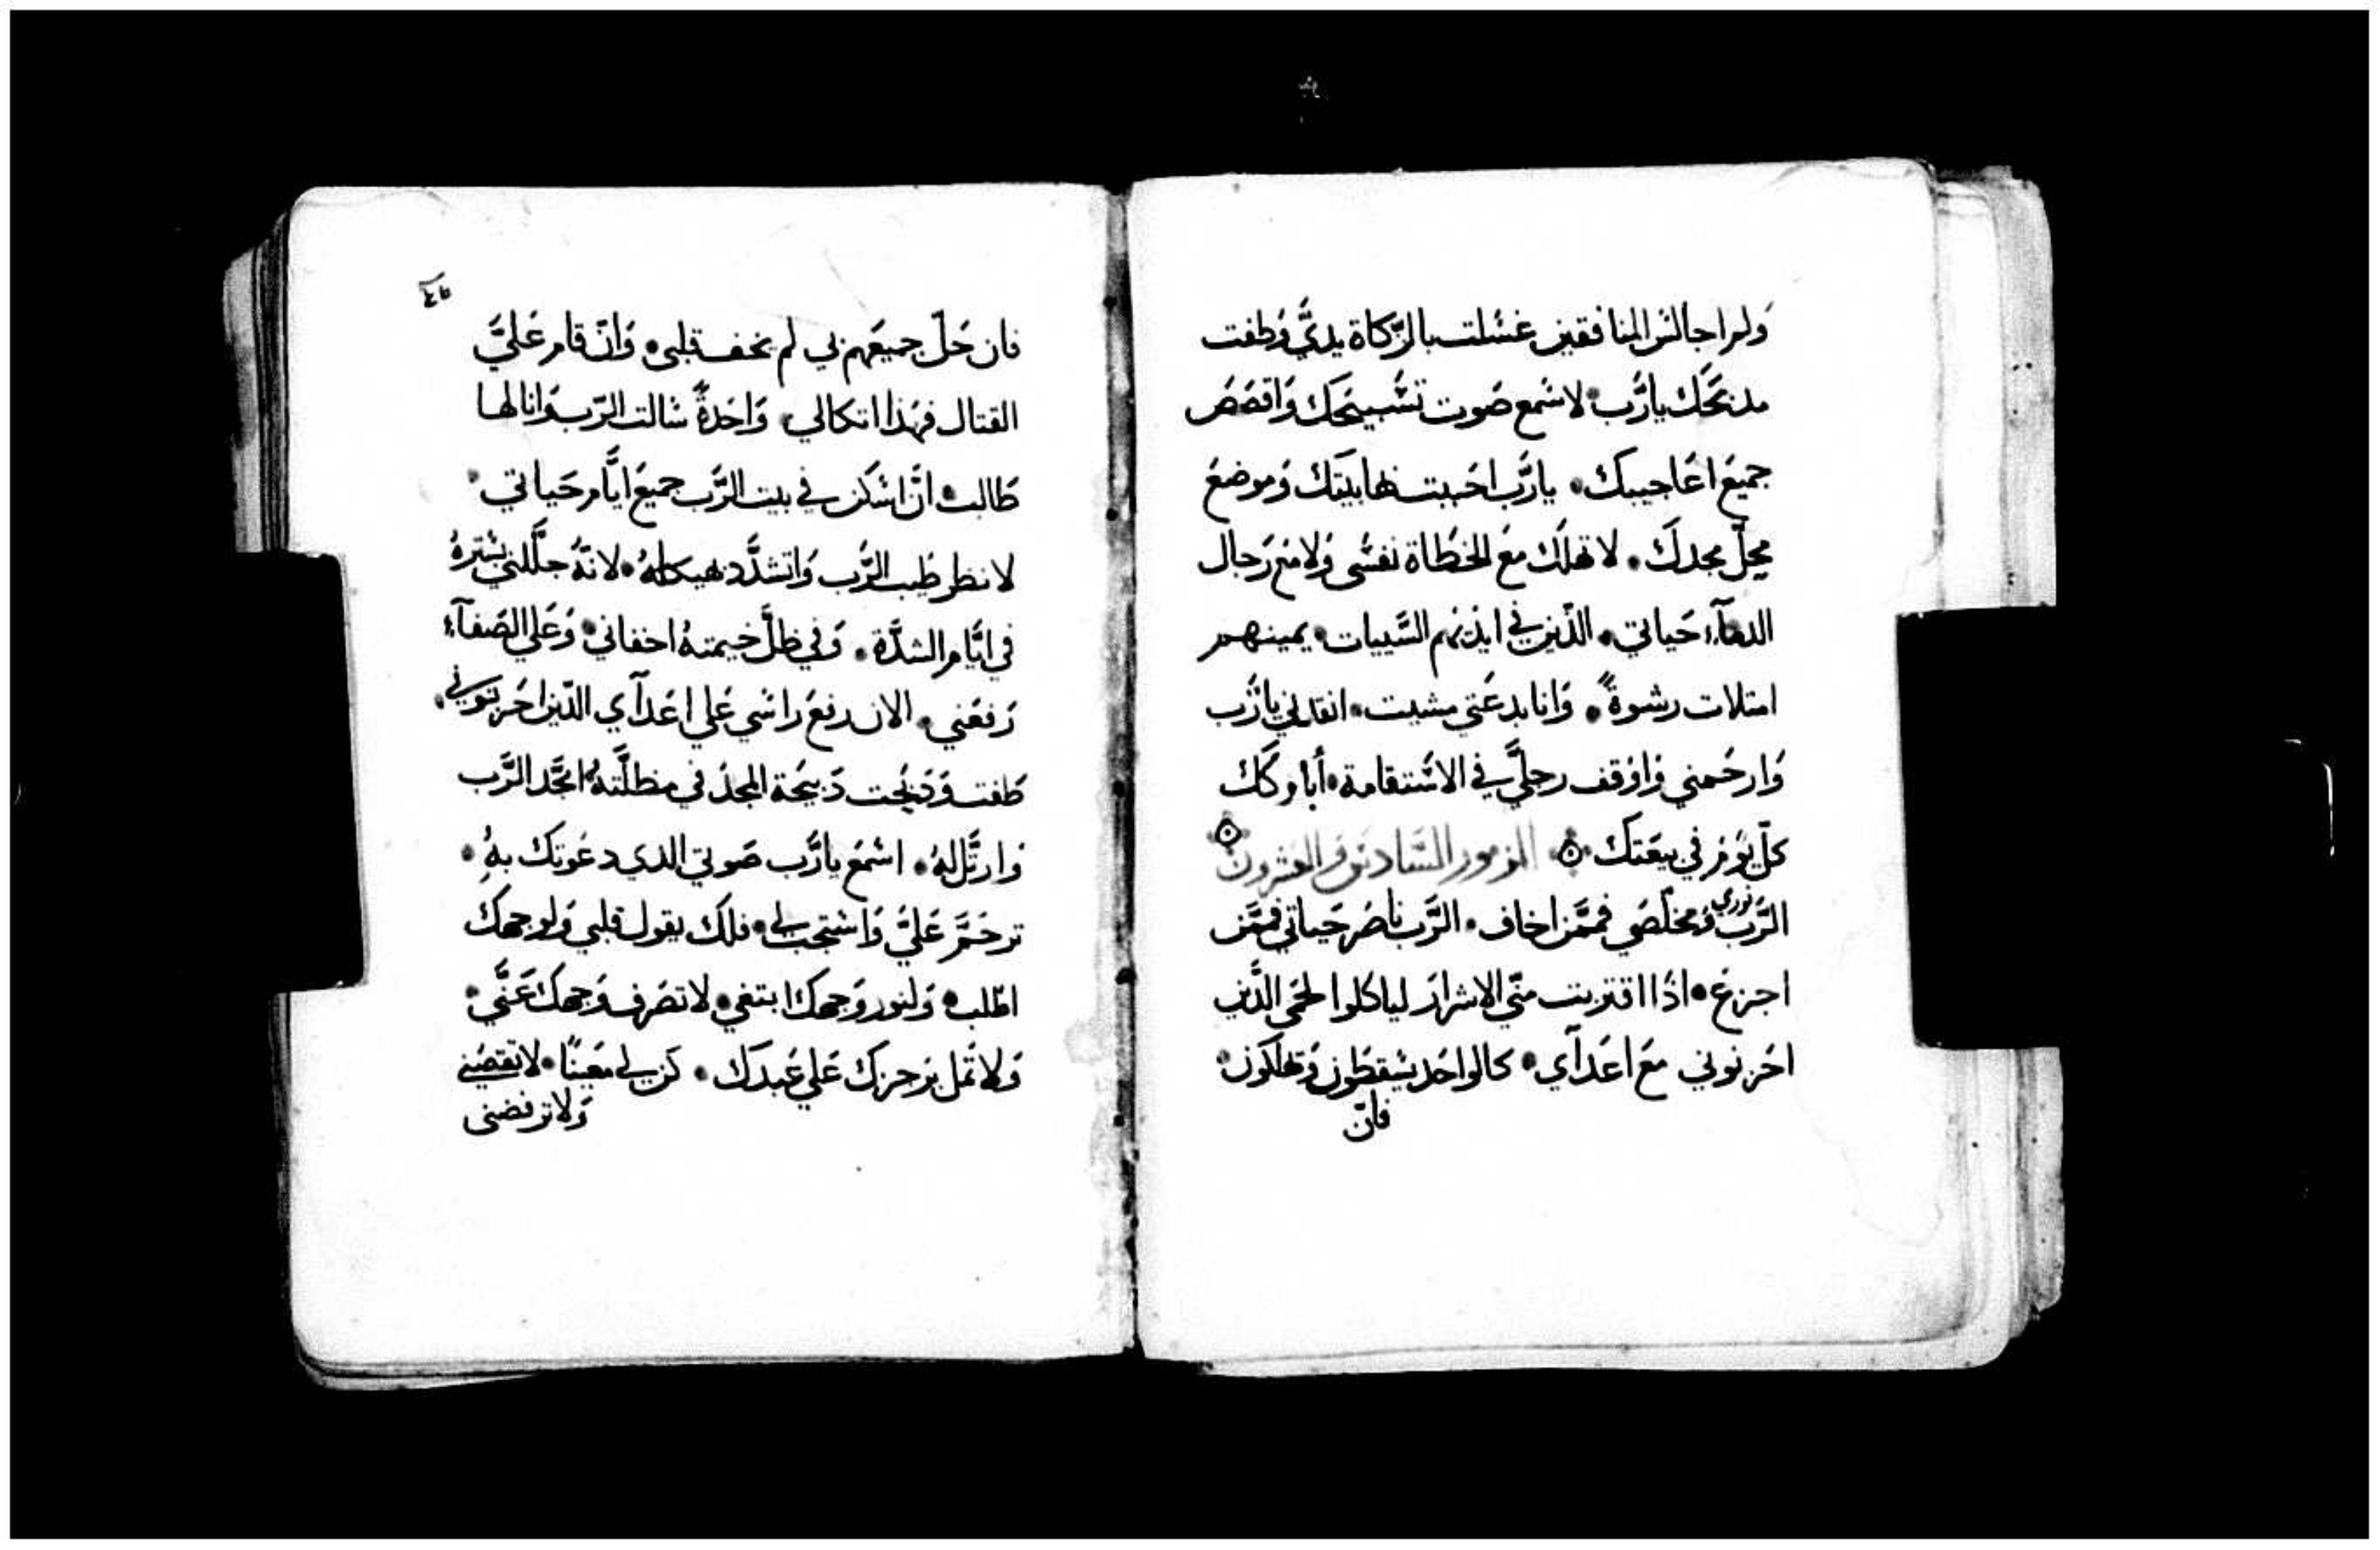 ولم اجالس المنافقين غسلت بالزكاة يديَّ وَطفت
مدبحَك يارَّب لاسمع صَوت تسُبيحَك وَاقصَص
جميعَ اعَاجيبك. يارَّب احَببت بها بيَتك وَموضعَ
محِلّ مجدكَ. لا تهلك معَ الخطَاة نفسُى وَلا معَ رَجال
الدمآء حَياتي. الدّين في ايديهم السَّييات يمينهم
امتلات رشوةً. وَانا بدعَتي مشيت. انقدني يارَّب
وَارحَمني وَاوَقف رجليَّ في الاسُتقامة أباركك
كلّ يَوم في بيعَتك المزمور السَّادسَ وَالعشرون
الرَّب نوري وَمخلّصَي فممَّن اخاف. الرَّب ناصَر حَياتي فممَّن
اجزعَ. ادَا اقتربت منّي الاشرارَ لياكلوا لحمَي الدَّين
احَزنوني معَ اعَدآي. كالواحَد يسُقطَون وَيهلكون
فانّ
٤٦
فان حَلّ جميعَهم بي لم يخف قلبي. وَانّ قام عَليَّ
القتال فهَذا اتكالي. وَاحَدةً سَالت الرّب وَانا لها
طَالب. انّ اسُكن في بيت الرَّب جميعَ ايَّام حَياتي.
لانظر طَيب الرَّب وَاتشدَّد بهيكلهُ. لانّهُ جلّلني بسُترهُ
في ايَّام الشدَّة. وَفي ظلَّ خيمتهُ اخفاني. وَعَلي الصَفآء
رَفعَني. الان رفعَ راسَي عَلي اعَدآي الدّين احَزنوني.
طَفت وَدبحت دَبيحَة المجدَ في مظلَّتهُ امجَّد الرَّب
وَارتَّل لهُ. اسُمعَ يارَّب صَوتي الدي دعَوتك بهُ.
ترحَمَّ عَليَّ وَاسُتجب لي. فلك يقول قلبي وَلوجهك
اطَلب. وَلنور وَجهك ابتغي. لا تصَرف وَجهك عَنَّي.
وَلا تمَل برجزك عَلي عَبدَك. كن لي معَينًا. لا تقصَيني
وَلا ترفضني